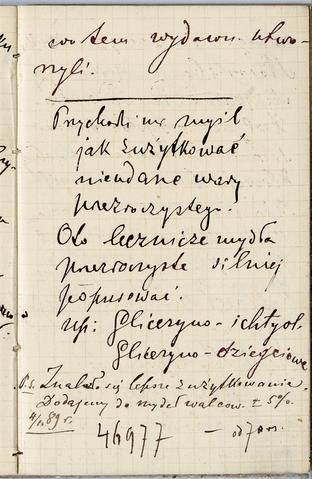 co tem wydawn. utwo-
rzyli.
Przychodzi mi myśl
jak zużytkować
nieudane wary
przezroczystego!
Oto lecznicze mydła
przezroczyste silniej
popusować.
np: Gliceryno-ichtyol.
Gliceryno-dziegciowe
Ps. Znalazło się lepsze zużytkowanie.
Dodajemy do mydeł walcow. ± 5%.
89 r.
46977 — od 7